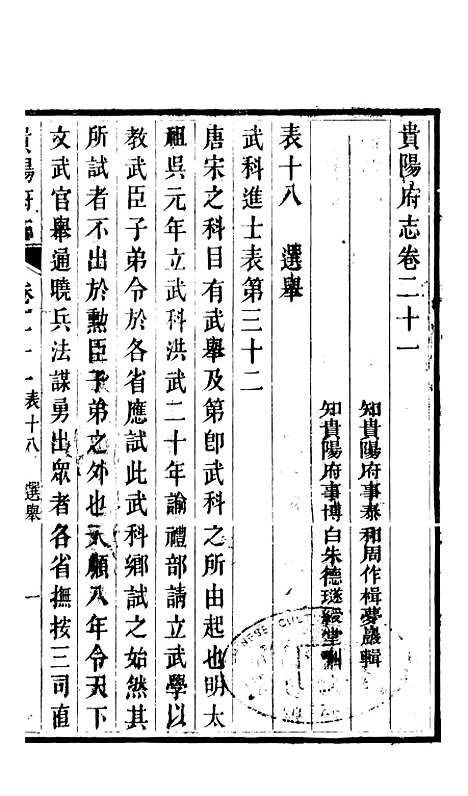 貴陽府志卷二十一
知貴陽府事泰和周作楫夢巖輯
知貴陽府事博白朱德璲綬堂
表十八　選舉
武科進士表第三十二
唐宋之科目有武舉及第卽武科之所由起也明太
祖吳元年立武科洪武二十年諭禮部請立武學以
教武臣子弟令於各省應試此武科鄉試之始然其
所試者不出於勲臣子弟之外也天順八年令天下
文武官舉通曉兵法謀勇出眾者各省撫按三司直
貴陽府志　卷二十一　表十八　選舉　一